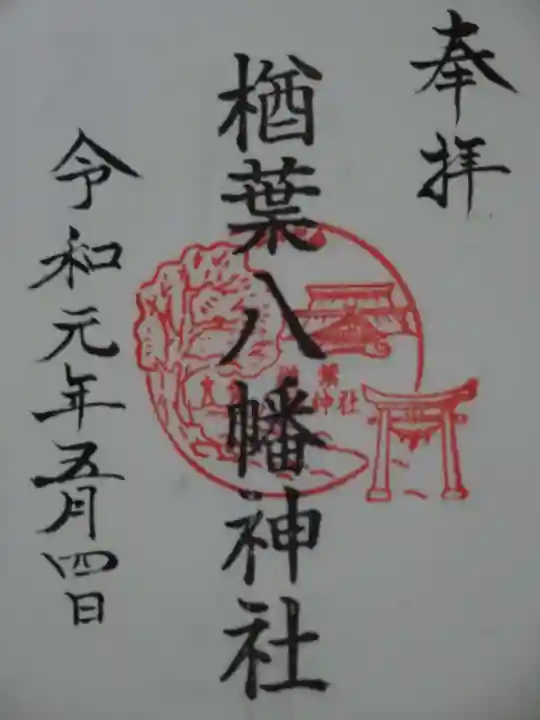 奉拝
楢葉八幡神社
令和元年五月四日
神社